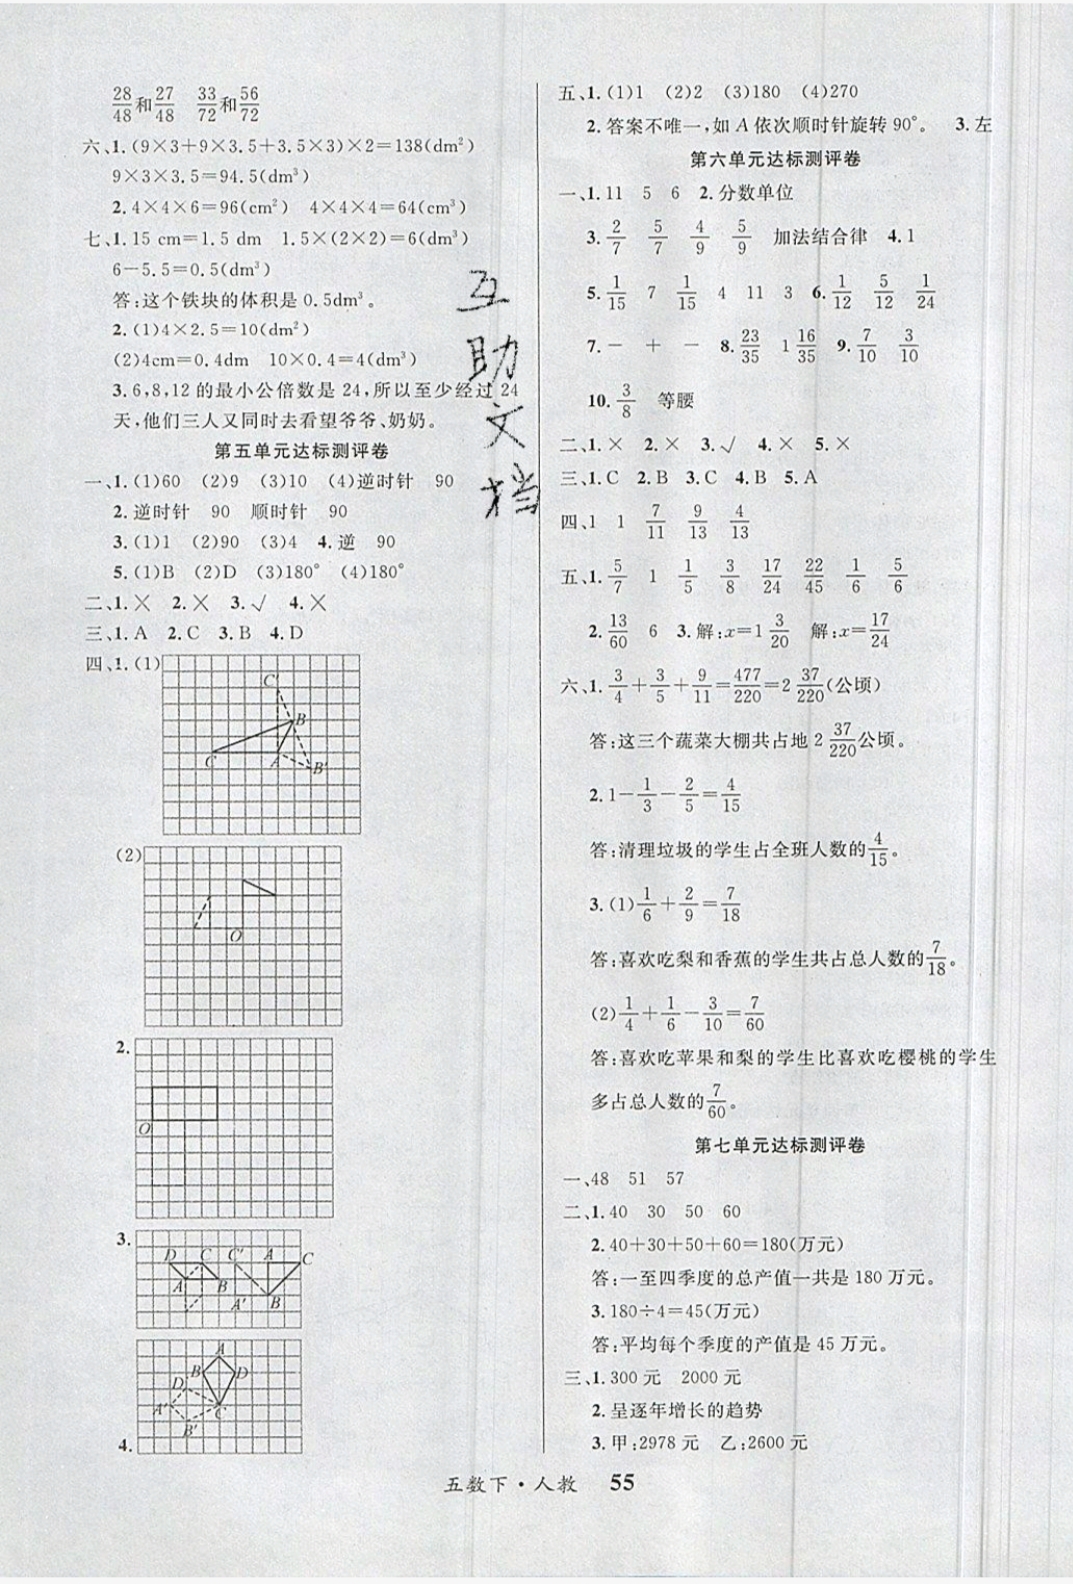 28/48和27/48 33/72和56/72
六、1.(9×3+9×3.5+3.5×3)×2=138(dm²)
9×3×3.5=94.5(dm³)
2.4×4×6=96(cm²) 4×4×4=64(cm³)
七、1.15 cm=1.5 dm 1.5×(2×2)=6(dm³)
6-5.5=0.5(dm³)
答:这个铁块的体积是0.5dm³。
2.(1)4×2.5=10(dm²)
(2)4cm=0.4dm 10×0.4=4(dm³)
3.6,8,12的最小公倍数是24,所以至少经过24
天,他们三人又同时去看望爷爷、奶奶。
第五单元达标测评卷
一、1.(1)60 (2)9 (3)10 (4)逆时针 90
2.逆时针 90 顺时针 90
3.(1)1 (2)90 (3)4 4.逆 90
5.(1)B (2)D (3)180° (4)180°
二、1.× 2.× 3.√ 4.×
三、1.A 2.C 3.B 4.D
四、1.(1)
C′
B
C A B′
(2)
O
2.
O
3.
D C C′ A C
A B A′ B
A
B D
D′
A′ C
B′
4.
互助文档
五、1.(1)1 (2)2 (3)180 (4)270
2.答案不唯一,如A依次顺时针旋转90°。 3.左
第六单元达标测评卷
一、1.11 5 6 2.分数单位
3.2/7 5/7 4/9 5/9 加法结合律 4.1
5.1/15 7 1/15 4 11 3 6.1/12 5/12 1/24
7.- + - 8.23/35 1 16/35 9.7/10 3/10
10.3/8 等腰
二、1.× 2.× 3.√ 4.× 5.×
三、1.C 2.B 3.C 4.B 5.A
四、1 1 7/11 9/13 4/13
五、1.5/7 1 1/5 3/8 17/24 22/45 1/6 5/6
2.13/60 6 3.解:x=1 3/20 解:x=17/24
六、1.3/4+3/5+9/11=477/220=2 37/220(公顷)
答:这三个蔬菜大棚共占地2 37/220公顷。
2.1-1/3-2/5=4/15
答:清理垃圾的学生占全班人数的4/15。
3.(1)1/6+2/9=7/18
答:喜欢吃梨和香蕉的学生共占总人数的7/18。
(2)1/4+1/6-3/10=7/60
答:喜欢吃苹果和梨的学生比喜欢吃樱桃的学生
多占总人数的7/60。
第七单元达标测评卷
一、48 51 57
二、1.40 30 50 60
2.40+30+50+60=180(万元)
答:一至四季度的总产值一共是180万元。
3.180÷4=45(万元)
答:平均每个季度的产值是45万元。
三、1.300元 2000元
2.呈逐年增长的趋势
3.甲:2978元 乙:2600元
五数下·人教 55